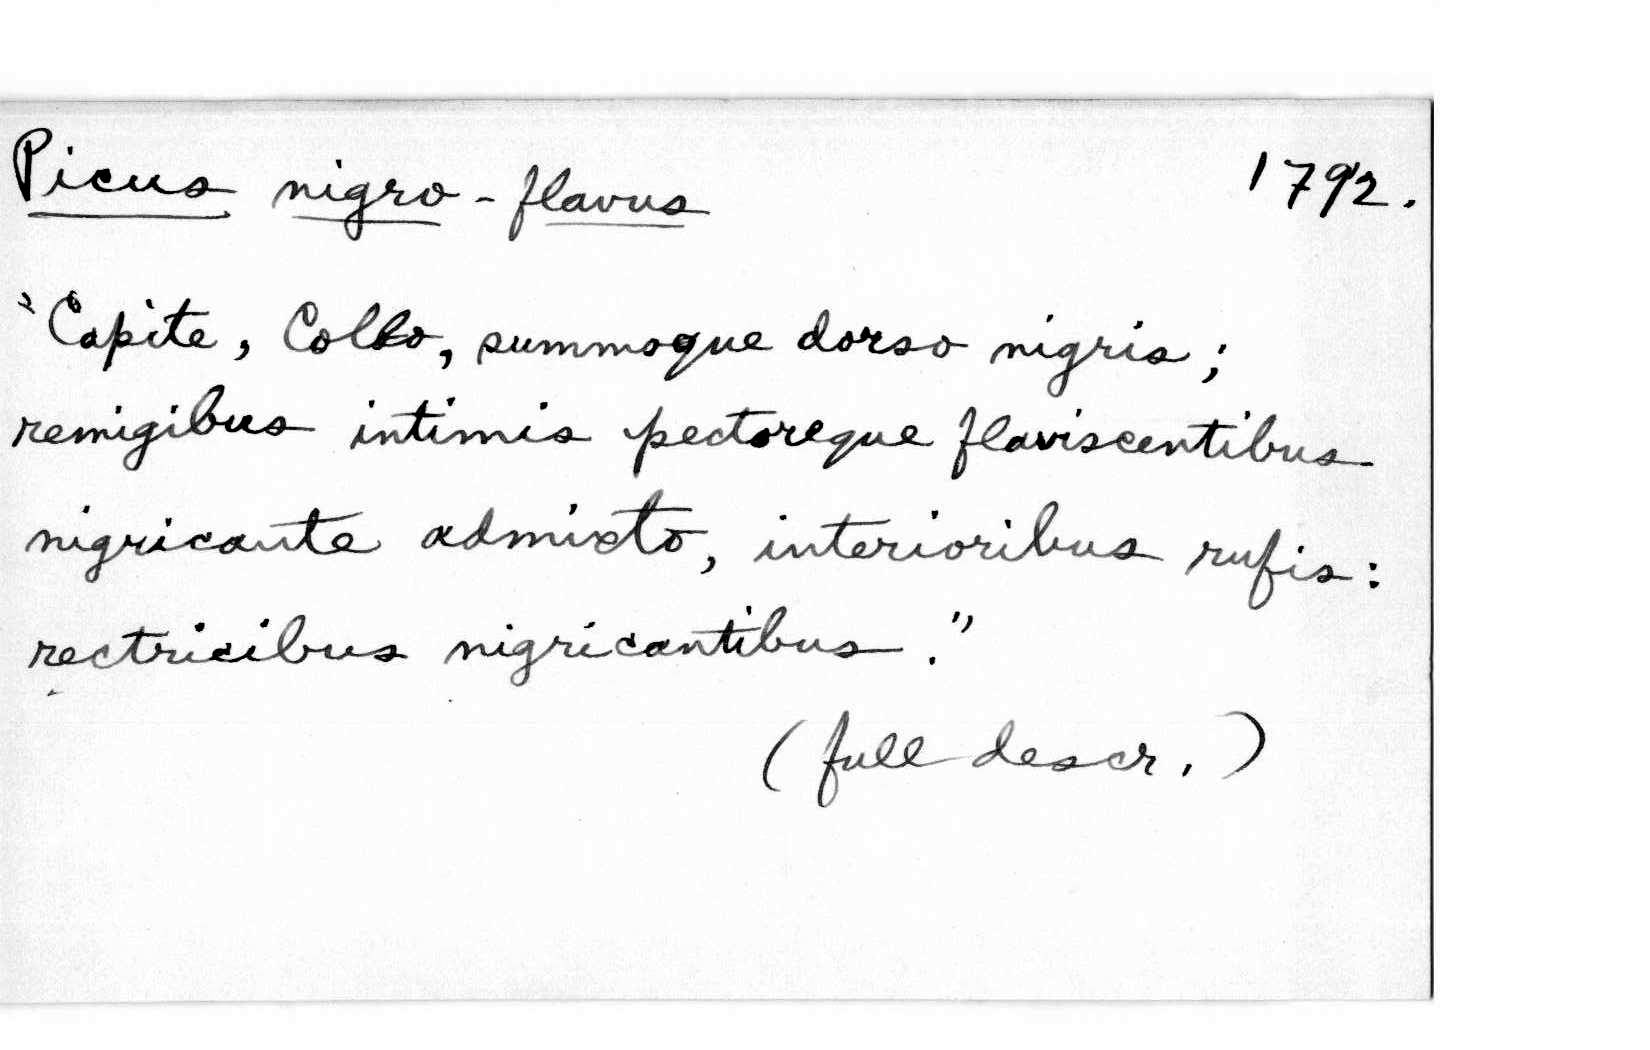 Picus nigro-flavus 1792.
"Capite, Collo, summoque dorso nigris;
remigibus intimis pectoreque flaviscentibus
nigricante admixto, interioribus rufis:
rectricibus nigricantibus."
(full descr.)